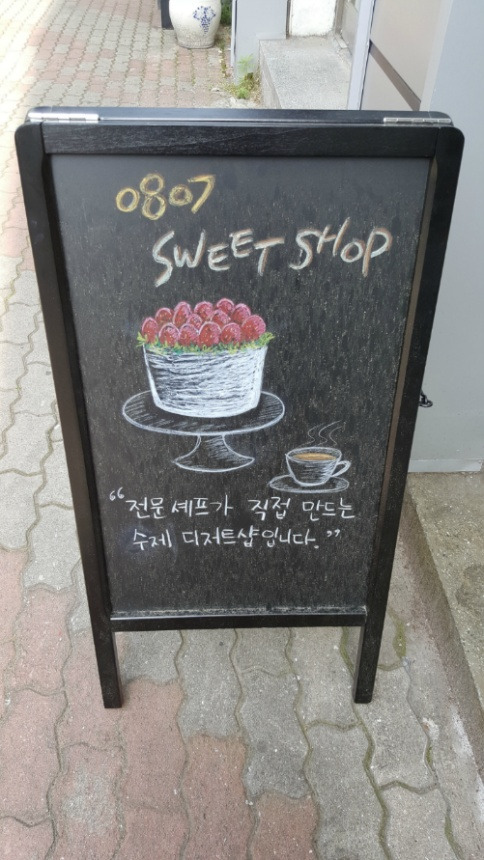 0807
SWEET SHOP
“전문 셰프가 직접 만드는
수제 디저트샵입니다.”